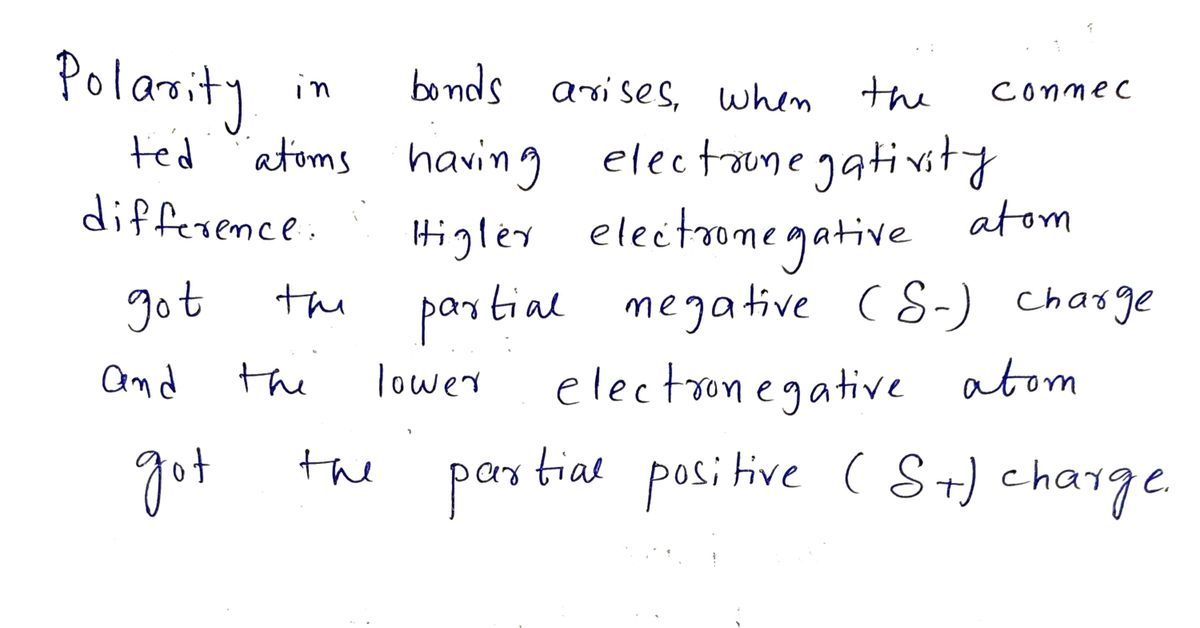 Polarity in bonds arises, when the connec
ted atoms having electronegativity
difference. Higler electronegative atom
got the partial negative (δ-) charge
and the lower electronegative atom
got the partial positive (δ+) charge.